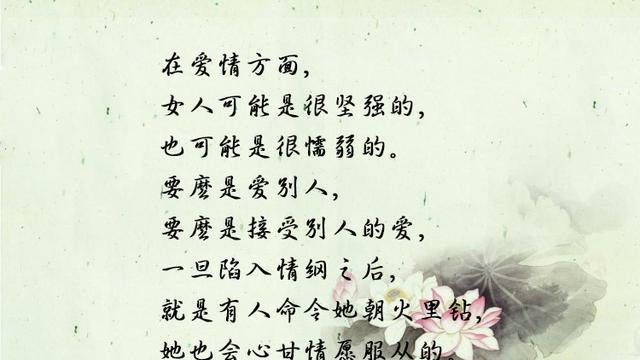 在爱情方面，
女人可能是很坚强的，
也可能是很懦弱的。
要麽是爱别人，
要麽是接受别人的爱，
一旦陷入情纲之后，
就是有人命令她朝火里钻，
她也会心甘情愿服从的。